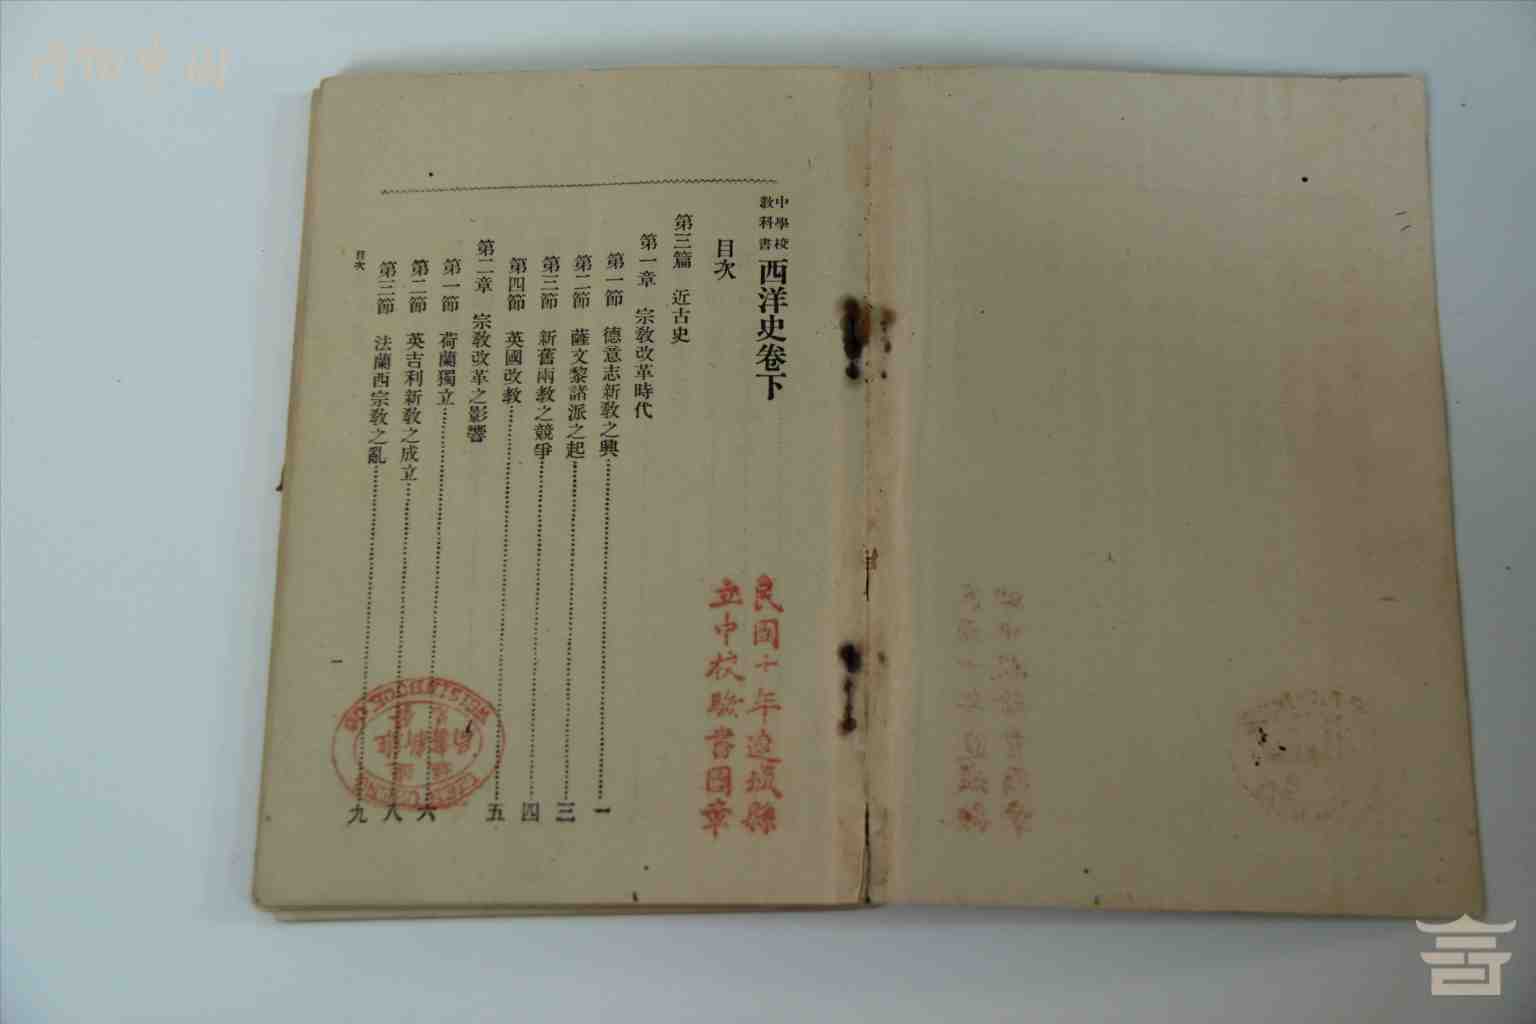 中學校
教科書
西洋史卷下
目次
第三篇 近古史
第一章 宗教改革時代
第一節 德意志新教之興 一
第二節 薩文黎諸派之起 三
第三節 新舊兩教之競爭 四
第四節 英國改教 五
第二章 宗教改革之影響
第一節 荷蘭獨立 六
第二節 英吉利新教之成立 八
第三節 法蘭西宗教之亂 九
目次
一
民國十年邊城縣
立中校驗書圖章